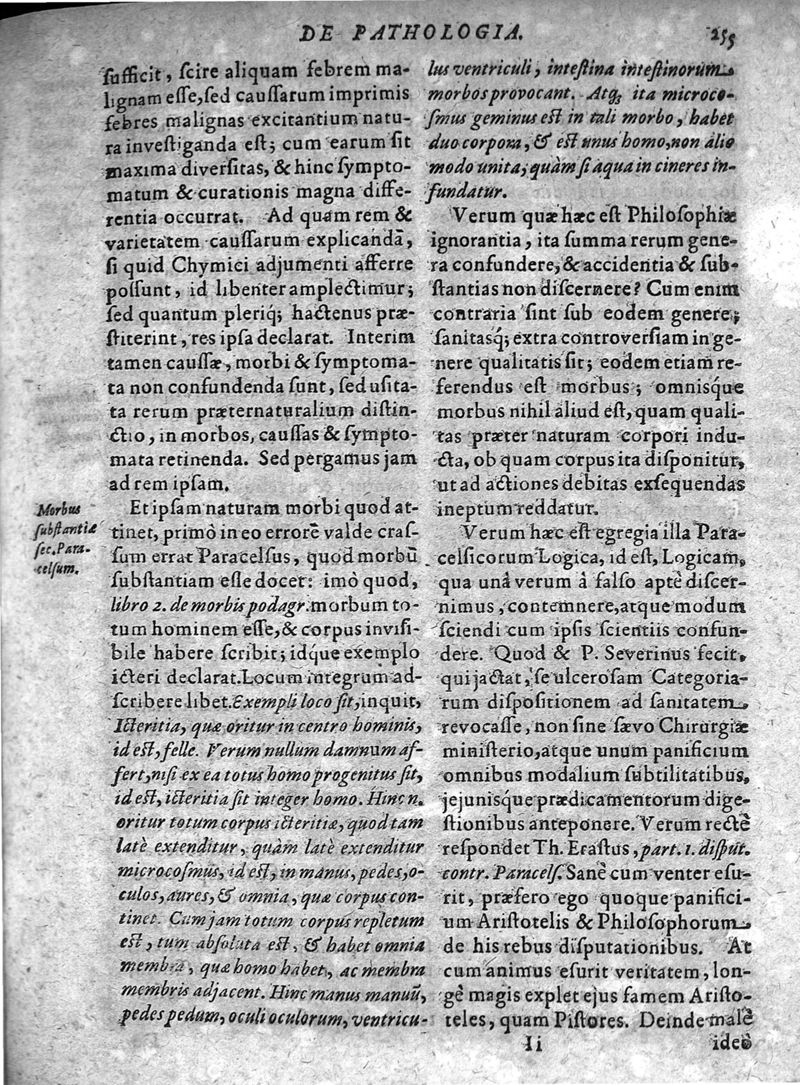 DE PATHOLOGIA. 255
ſufficit, ſcire aliquam febrem ma-
lignam eſſe, ſed cauſſarum imprimis
febres malignas excitantium natu-
ra inveſtiganda eſt; cum earum ſit
maxima diverſitas, & hinc ſympto-
matum & curationis magna diffe-
rentia occurrat. Ad quam rem &
varietatem cauſſarum explicandā,
ſi quid Chymici adjumenti afferre
poſſunt, id libenter amplectimur;
ſed quantum pleriq; hactenus præ-
ſtiterint, res ipſa declarat. Interim
tamen cauſſæ, morbi & ſymptoma-
ta non confundenda ſunt, ſed uſita-
ta rerum præternaturalium diſtin-
ctio, in morbos, cauſſas & ſympto-
mata retinenda. Sed pergamus jam
ad rem ipſam.
Et ipſam naturam morbi quod at-
tinet, primò in eo errorē valde craſ-
ſum errat Paracelſus, quod morbū
ſubſtantiam eſſe docet: imò quod,
libro 2. de morbis podagr. morbum to-
tum hominem eſſe, & corpus inviſi-
bile habere ſcribit; idque exemplo
icteri declarat. Locum integrum ad-
ſcribere libet. Exempli loco ſit, inquit,
Icteritia, quæ oritur in centro hominis,
id eſt, felle. Verum nullum damnum af-
fert, niſi ex ea totus homo progenitus ſit,
id eſt, icteritia ſit integer homo. Hinc n.
oritur totum corpus icteritiæ, quod tam
latè extenditur, quàm latè extenditur
microcoſmus, id eſt, in manus, pedes, o-
culos, aures, & omnia, quæ corpus con-
tinet. Cum jam totum corpus repletum
eſt, tum abſoluta eſt, & habet omnia
membra, quæ homo habet, ac membra
membris adjacent. Hinc manus manuū,
pedes pedum, oculi oculorum, ventricu-
Morbus
ſubſtantia
ſec. Para-
celſum.
lus ventriculi, inteſtina inteſtinorum
morbos provocant. Atq; ita microco-
ſmus geminus eſt in tali morbo, habet
duo corpora, & eſt unus homo, non alio
modo unita, quàm ſi aqua in cineres in-
fundatur.
Verum quæ hæc eſt Philoſophiæ
ignorantia, ita ſumma rerum gene-
ra confundere, & accidentia & ſub-
ſtantias non diſcernere? Cum enim
contraria ſint ſub eodem genere,
ſanitasq; extra controverſiam in ge-
nere qualitatis ſit; eodem etiam re-
ferendus eſt morbus; omnisque
morbus nihil aliud eſt, quam quali-
tas præter naturam corpori indu-
cta, ob quam corpus ita diſponitur,
ut ad actiones debitas exſequendas
ineptum reddatur.
Verum hæc eſt egregia illa Para-
celſicorum Logica, id eſt, Logicam,
qua unâ verum â falſo aptè diſcer-
nimus, contemnere, atque modum
ſciendi cum ipſis ſcientiis confun-
dere. Quod & P. Severinus fecit,
qui jactat, ſe ulceroſam Categoria-
rum diſpoſitionem ad ſanitatem
revocaſſe, non ſine ſævo Chirurgiæ
miniſterio, atque unum panificium
omnibus modalium ſubtilitatibus,
jejunisque prædicamentorum dige-
ſtionibus anteponere. Verum rectè
reſpondet Th. Eraſtus, part. 1. diſput.
contr. Paracelſ. Sanè cum venter eſu-
rit, præfero ego quoque panifici-
um Ariſtotelis & Philoſophorum
de his rebus diſputationibus. At
cum animus eſurit veritatem, lon-
gè magis explet ejus famem Ariſto-
teles, quam Piſtores. Deinde malè
Ii ideò